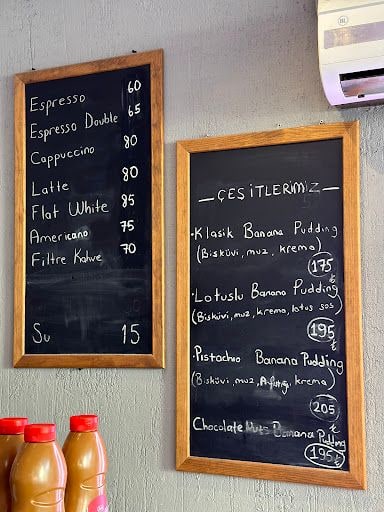 Espresso 60
Espresso Double 65
Cappuccino 80
Latte 80
Flat White 85
Americano 75
Filtre Kahve 70
Su 15
— ÇEŞİTLERİMİZ —
• Klasik Banana Pudding
(Bisküvi, muz, krema)
175 ₺
• Lotuslu Banana Pudding
(Bisküvi, muz, krema, lotus sos)
195 ₺
• Pistachio Banana Pudding
(Bisküvi, muz, krema)
205 ₺
Chocolate Banana Pudding
195 ₺